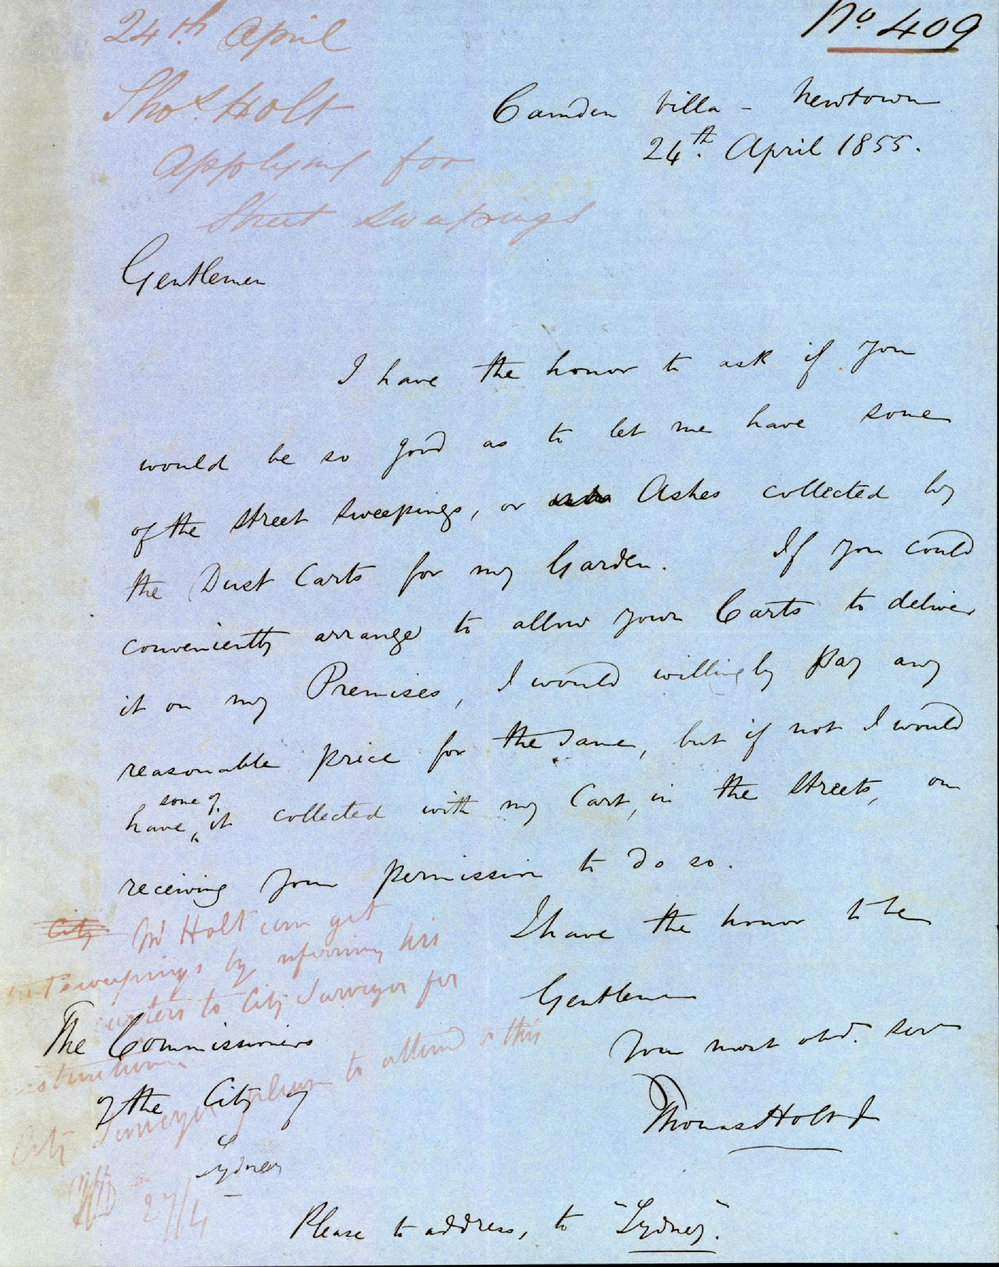 No 409
24th April
Thos. Holt
Applying for
Street Sweepings
Camden Villa - Newtown
24th. April 1855.
Gentlemen
I have the honor to ask if you
would be so good as to let me have some
of the street sweepings, or Ashes collected by
the Dust Carts for my Garden. If you could
conveniently arrange to allow your Carts to deliver
it on my Premises, I would willingly pay any
reasonable price for the same, but if not I would
have some of it collected with my Cart, in the Streets, on
receiving your permission to do so.
I have the honor to be
Gentlemen
Your most obdt. servt
Thomas Holt
The Commissioners
of the City of
Sydney
City Mr Holt can get
sweepings by referring his
carters to City Surveyor for
instructions
City Surveyor please to attend to this
27/4
Please to address, to "Sydney".